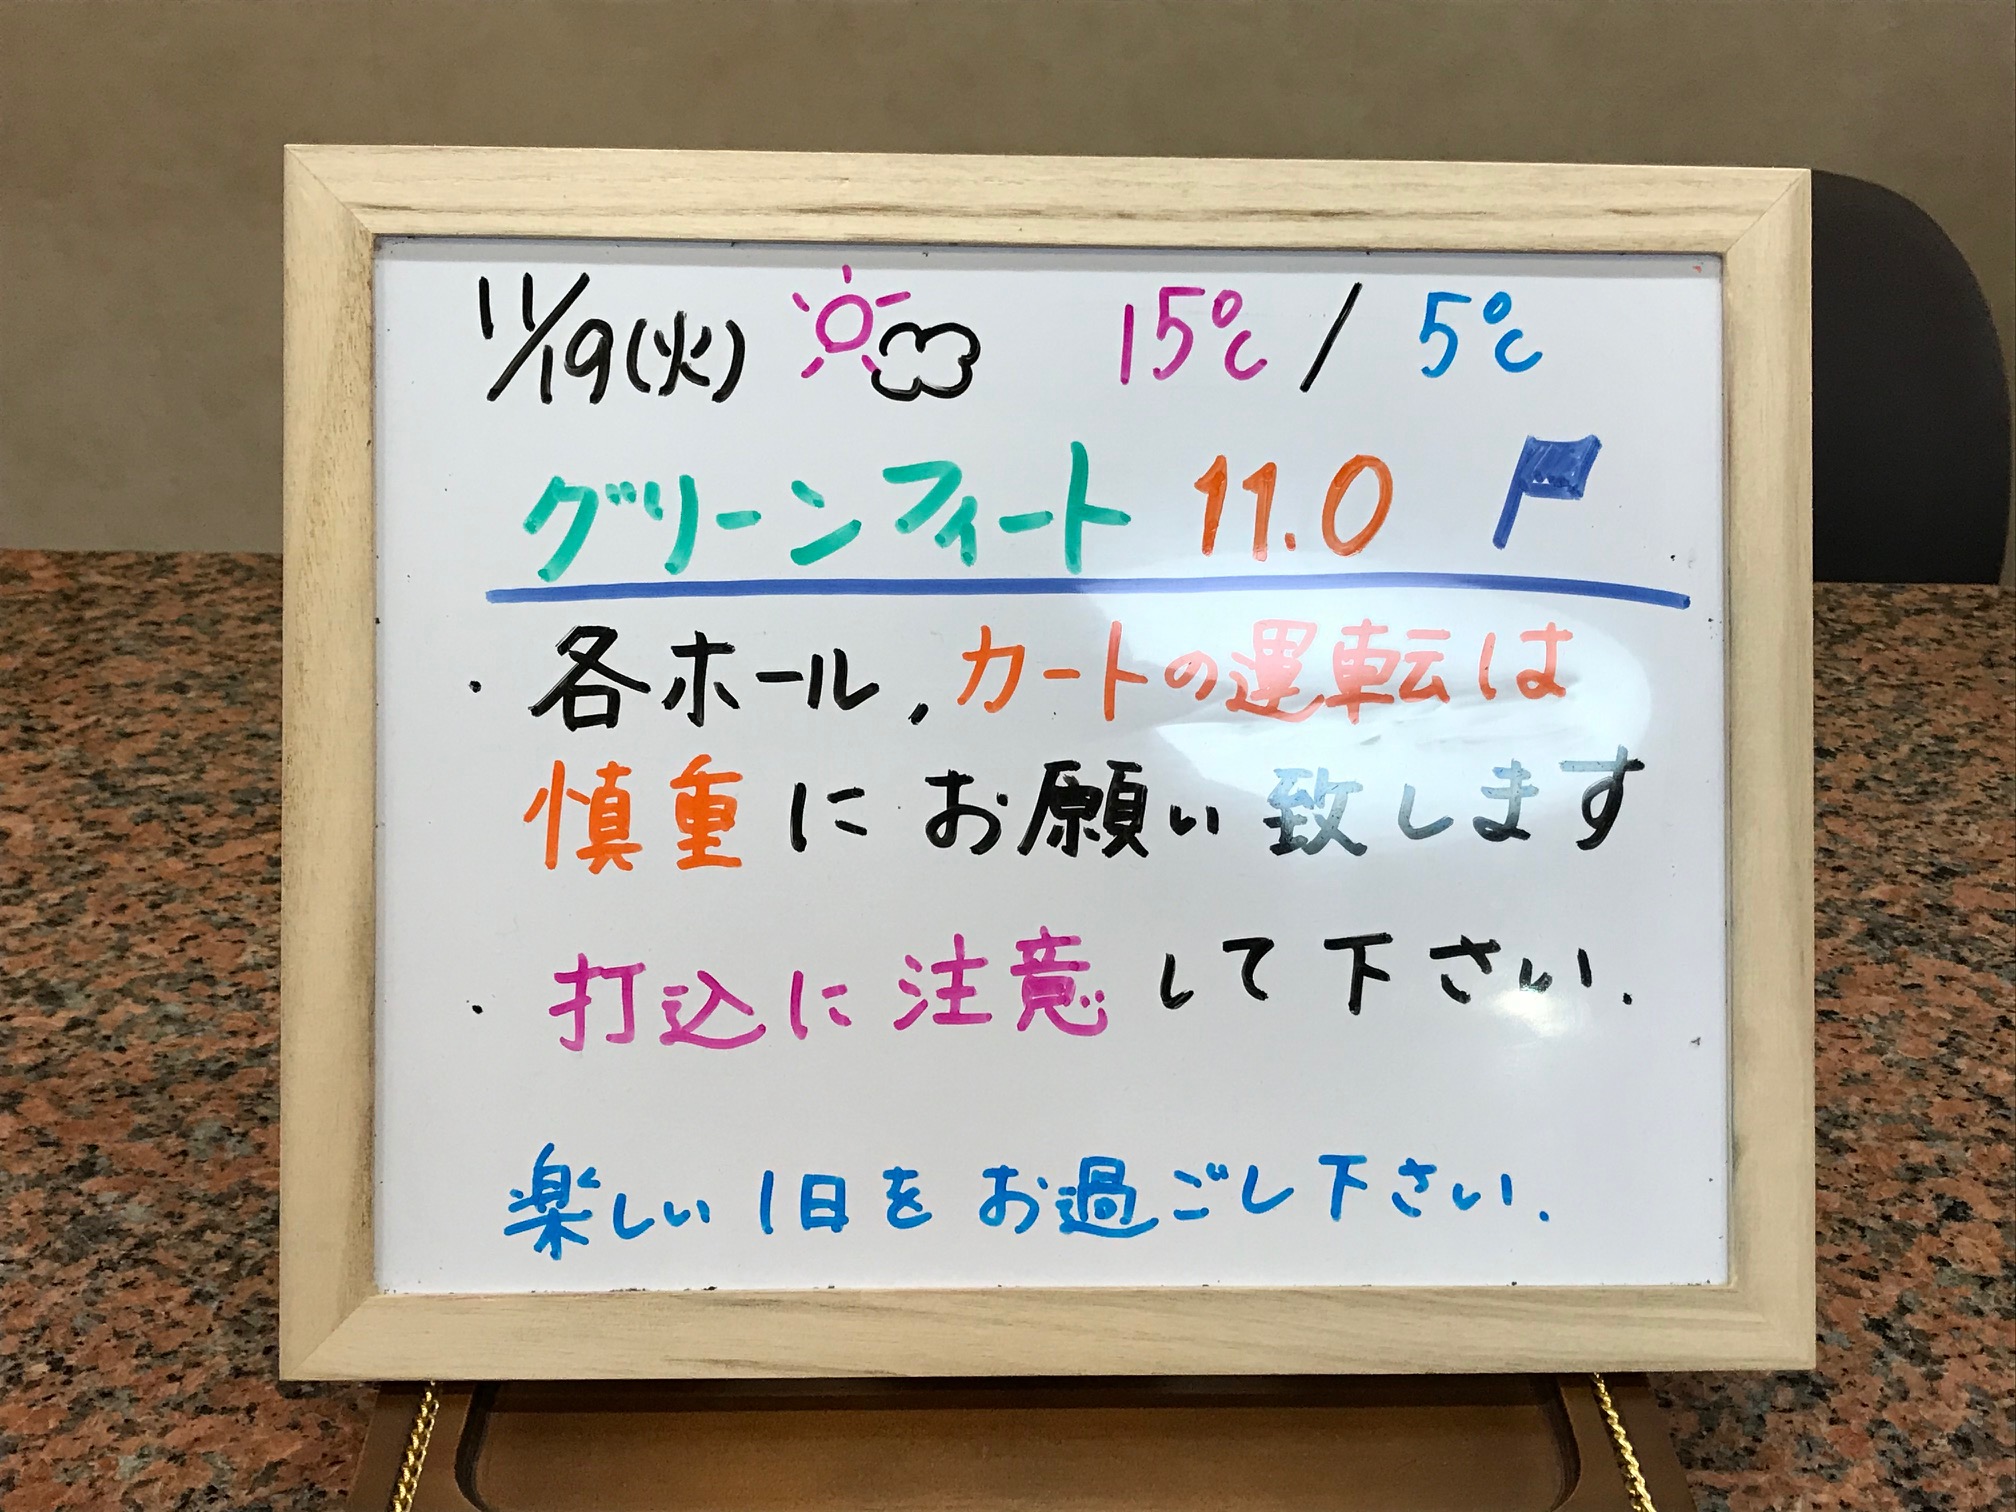 11/19(火) 15℃ / 5℃
グリーンフィート 11.0
・各ホール,カートの運転は
慎重にお願い致します
・打込に注意して下さい.
楽しい1日をお過ごし下さい.